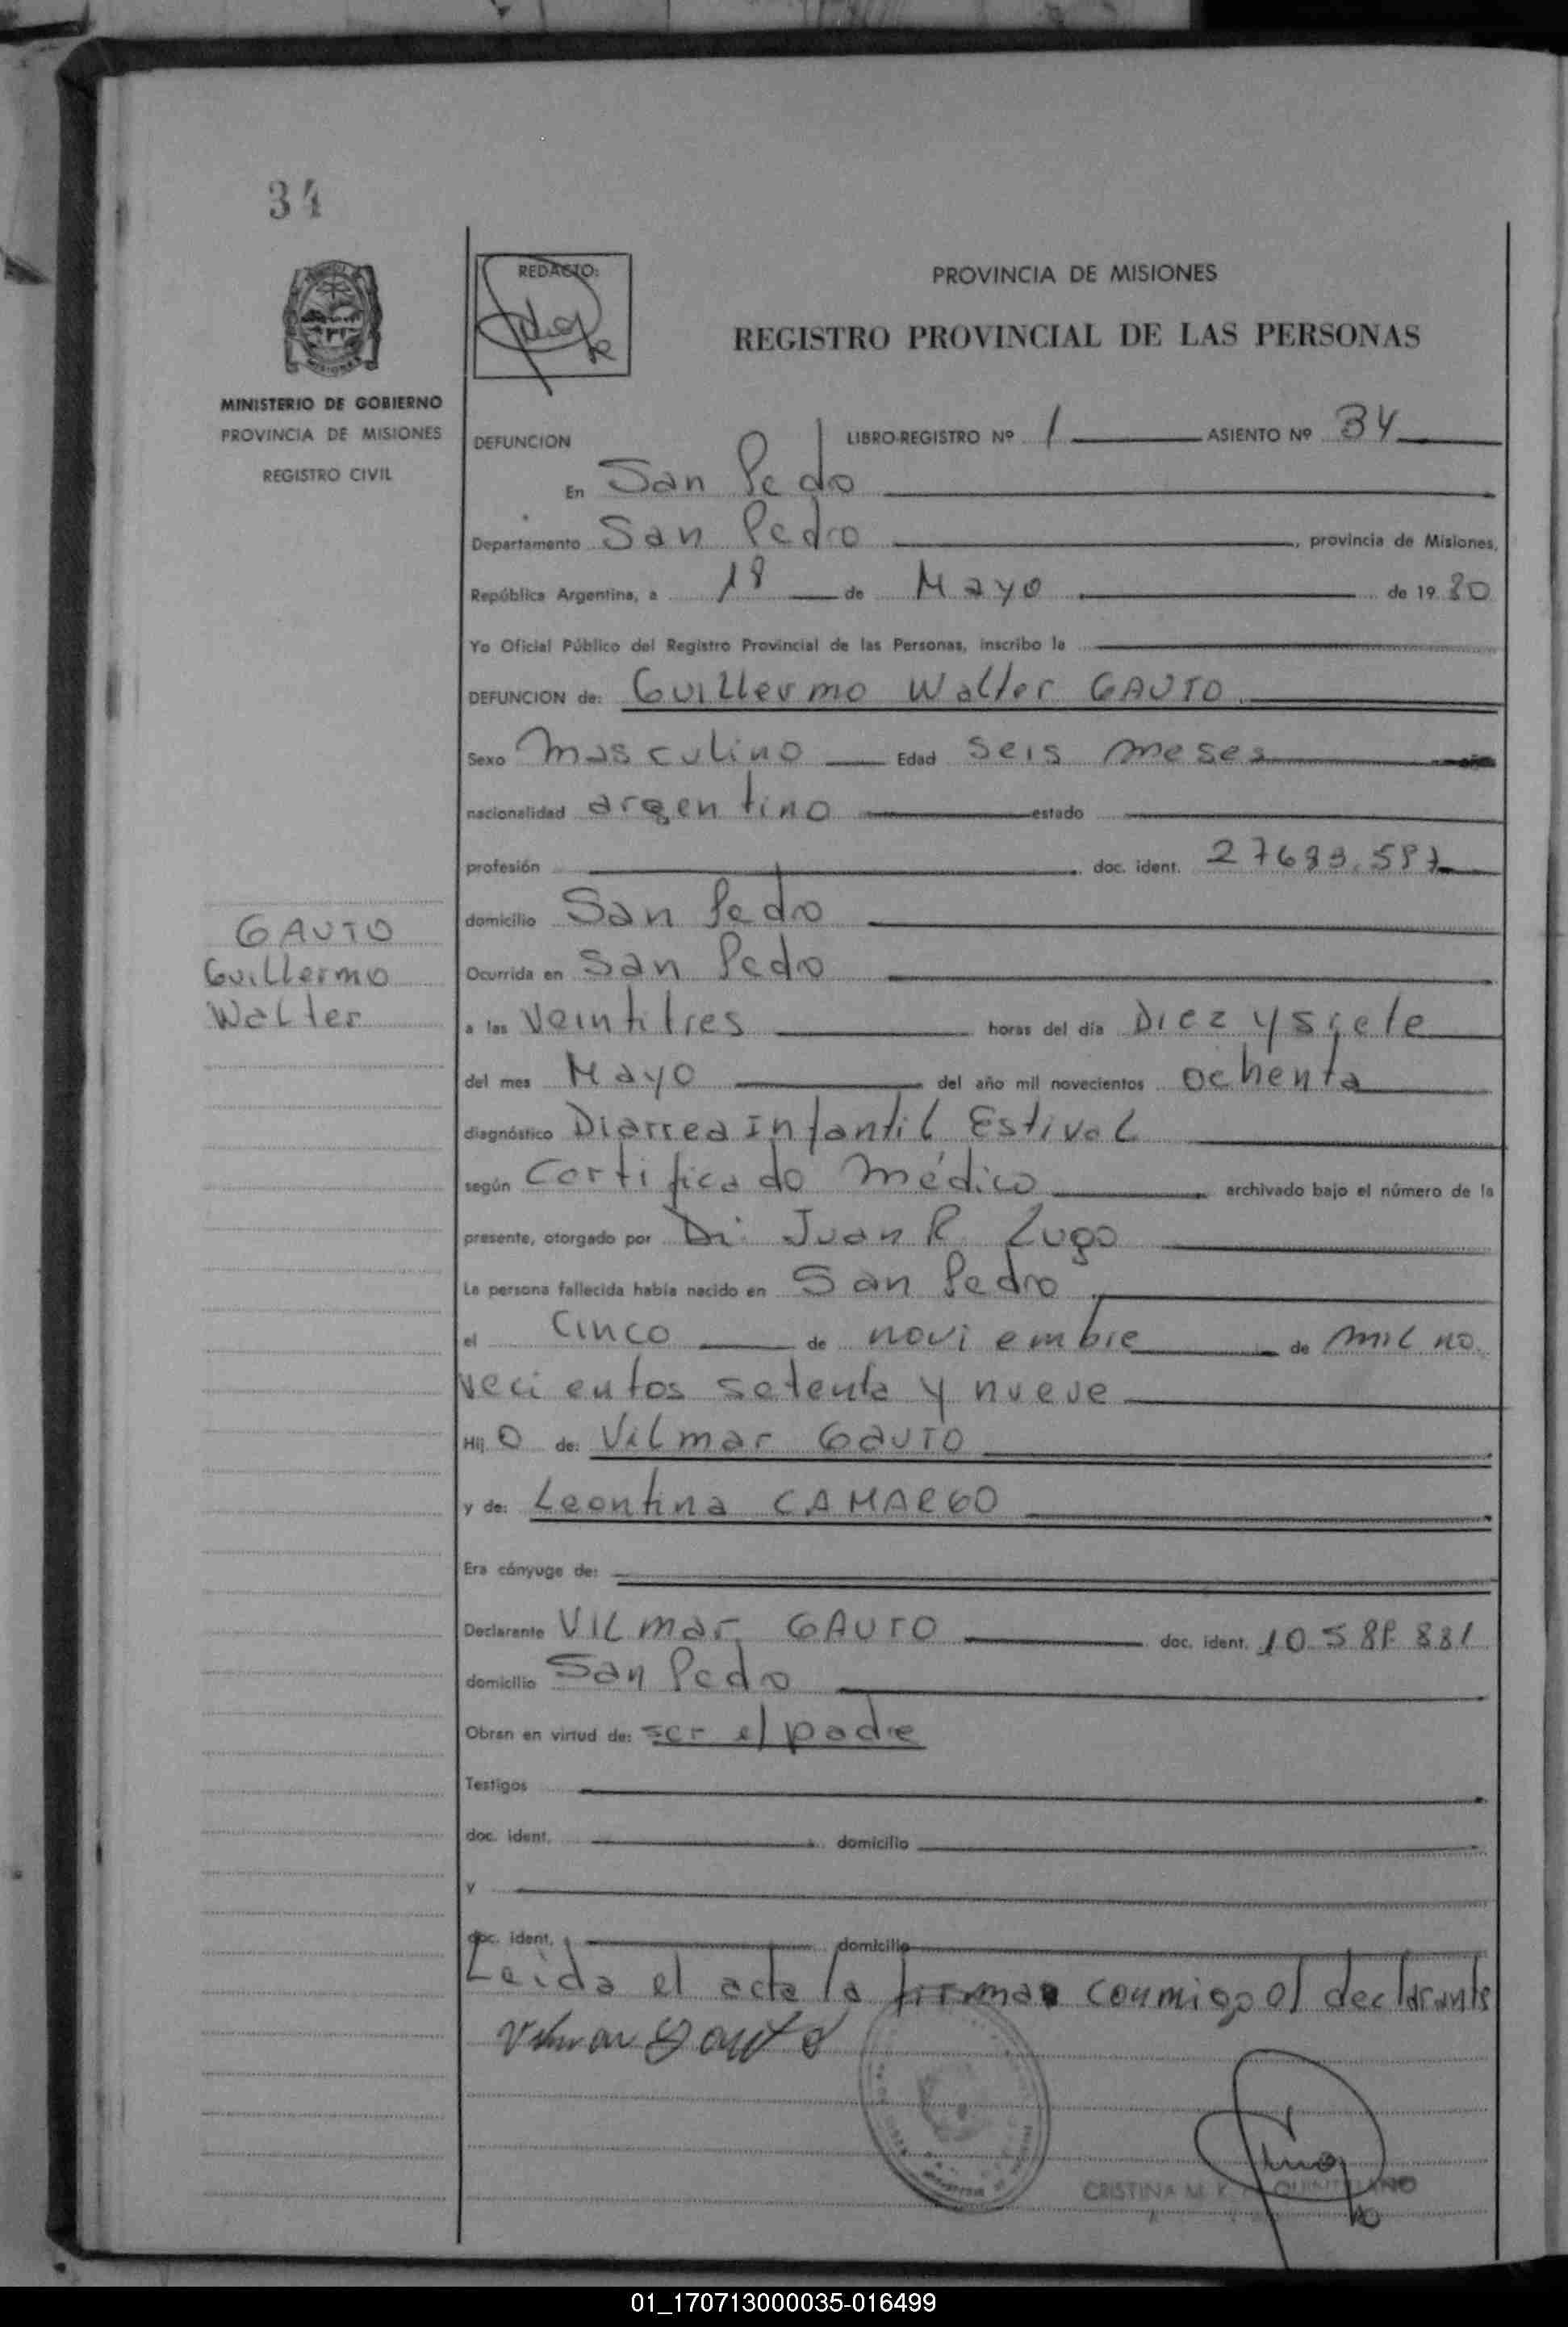 34
REDACTO:
PROVINCIA DE MISIONES
REGISTRO PROVINCIAL DE LAS PERSONAS
MINISTERIO DE GOBIERNO
PROVINCIA DE MISIONES
REGISTRO CIVIL
DEFUNCION LIBRO-REGISTRO Nº 1 ASIENTO Nº 34
En San Pedro
Departamento San Pedro, provincia de Misiones,
República Argentina, a 18 de Mayo de 1980
Yo Oficial Público del Registro Provincial de las Personas, inscribo la
DEFUNCION de: Guillermo Walter GAUTO
Sexo masculino Edad seis meses
nacionalidad argentino estado
profesión doc. ident.
domicilio San Pedro
GAUTO
Guillermo
Walter
Ocurrida en San Pedro
a las Veintitres horas del día Diez y siete
del mes Mayo del año mil novecientos ochenta
diagnóstico Diarrea Infantil Estival
según Certificado médico archivado bajo el número de la
presente, otorgado por Dr. Juan R. Lugo
La persona fallecida había nacido en San Pedro
el Cinco de noviembre de mil no
vecientos setenta y nueve
Hij o de: Vilmar GAUTO
y de: Leontina CAMARGO
Era cónyuge de:
Declarante VILmar GAUTO doc. ident.
domicilio San Pedro
Obran en virtud de: ser el padre
Testigos
doc. ident. domicilio
y
doc. ident. domicilio
Leida el acta la firma conmigo el declarante
Vilmar Gauto
CRISTINA M. K.
01_170713000035-016499